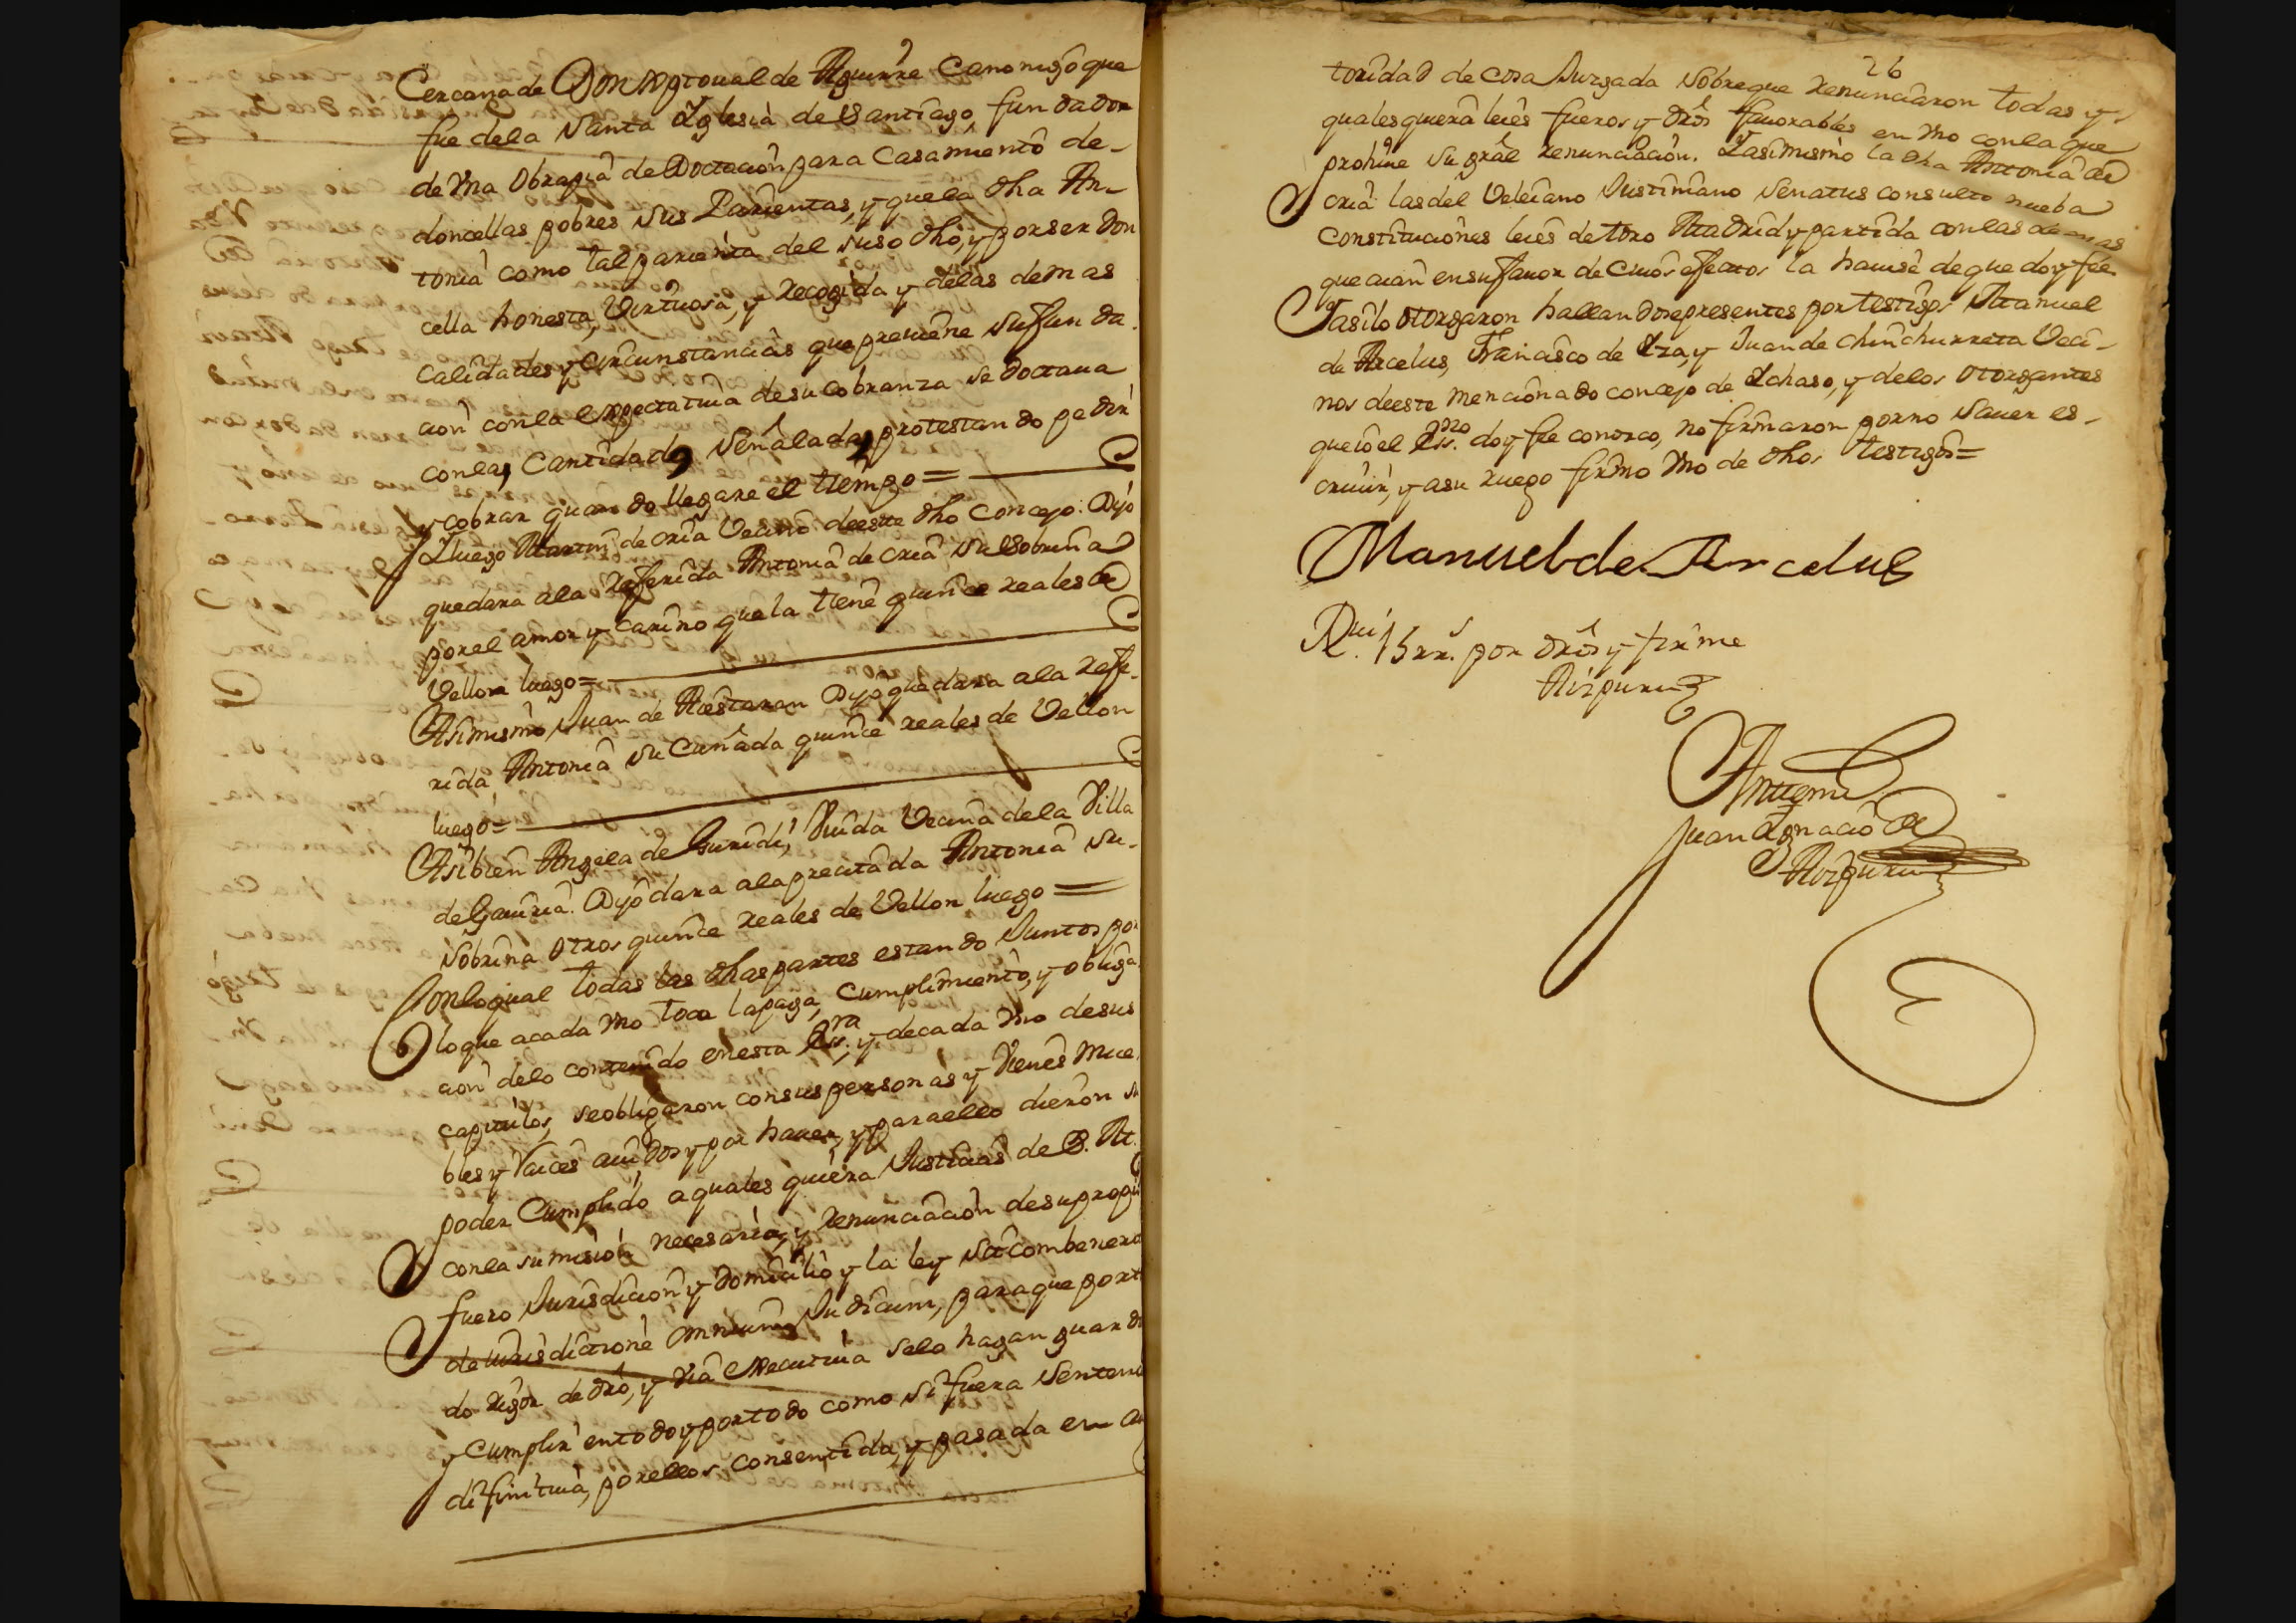 Cercana de Don Xptoual de Aguirre Canonigo que
fue dela Santa Yglesia de Santiago, fundador
de vna obrapia de Doctacion para Casamiento de-
doncellas pobres sus Parientas, y que la dha An-
tonia como tal parienta del suso dho, y por ser don
cella honesta, virtuosa, y recogida y delas demas
calidades y circunstancias que preuiene su funda-
cion con la expectatiua de su cobranza se doctaua
con las Cantidades señaladas protestando pedir
y cobrar quando llegare el tiempo =
Yluego Martin de oria Vecino deeste dho Concejo: Dijo
quedara ala referida Antonia de oria su Sobrina
por el amor y cariño que la tiene quince reales de
Vellon luego =
Asimismo Juan de Aestaran Dijo quedara ala refe-
rida Antonia su Cuñada quince reales de Vellon
luego =
Asibien Angela de Guridi, Viuda Vecina dela Villa
de Gauiria. Dijo dara ala precitada Antonia su-
Sobrina otros quince reales de Vellon luego =
Conloqual todas las dhas partes estando Juntos por
lo que acada vno toca la paga, Cumplimiento, y obliga-
cion delo contenido en esta Ess.ra y decada vno de sus
capitulos, se obligaron con sus personas y vienes mue
bles y raices auidos y por hauer, y para ello dieron su
poder Cumplido a quales quiera Justicias de S. M.
con la sumision necesaria, y renunciacion de su propio
fuero Jurisdicion y domicilio y la ley sit combenerit
de iurisdictione omnium Judicum, para que por to
do rigor de dro, y via executiua selo hagan guardar
y Cumplir en todo y por todo como si fuera Sentencia
difinitiua, por ellos consentida, y pasada en au
26
toridad de cosa Juzgada sobre que renunciaron todas y
quales quiera leies fueros y dros fauorables en vno con la que
prohiue su gral renunciacion. Y asimismo la dha Antonia de
oria las del Veleiano Justiniano Senatus consulto nueba
Constituciones leies de toro Madrid y partida con las demas
que ai an en su fauor de cuios efectos la hauise de que doy fee
Yasilo otorgaron hallandose presentes por testigos Manuel
de Arcelus, Francisco de Yza, y Juan de Chinchurreta Veci-
nos deeste mencionado concejo de Ychaso, y delos otorgantes
que io el Ess.no doy fee conozco, no firmaron por no sauer es-
criuir, y asu ruego firmo vno de dhos testigos =
Manuel de Arcelus
R.ui 15 rr.s por dros y firme
Aizpuru
Antemi
Juan Ygnacio de
Aizpuru